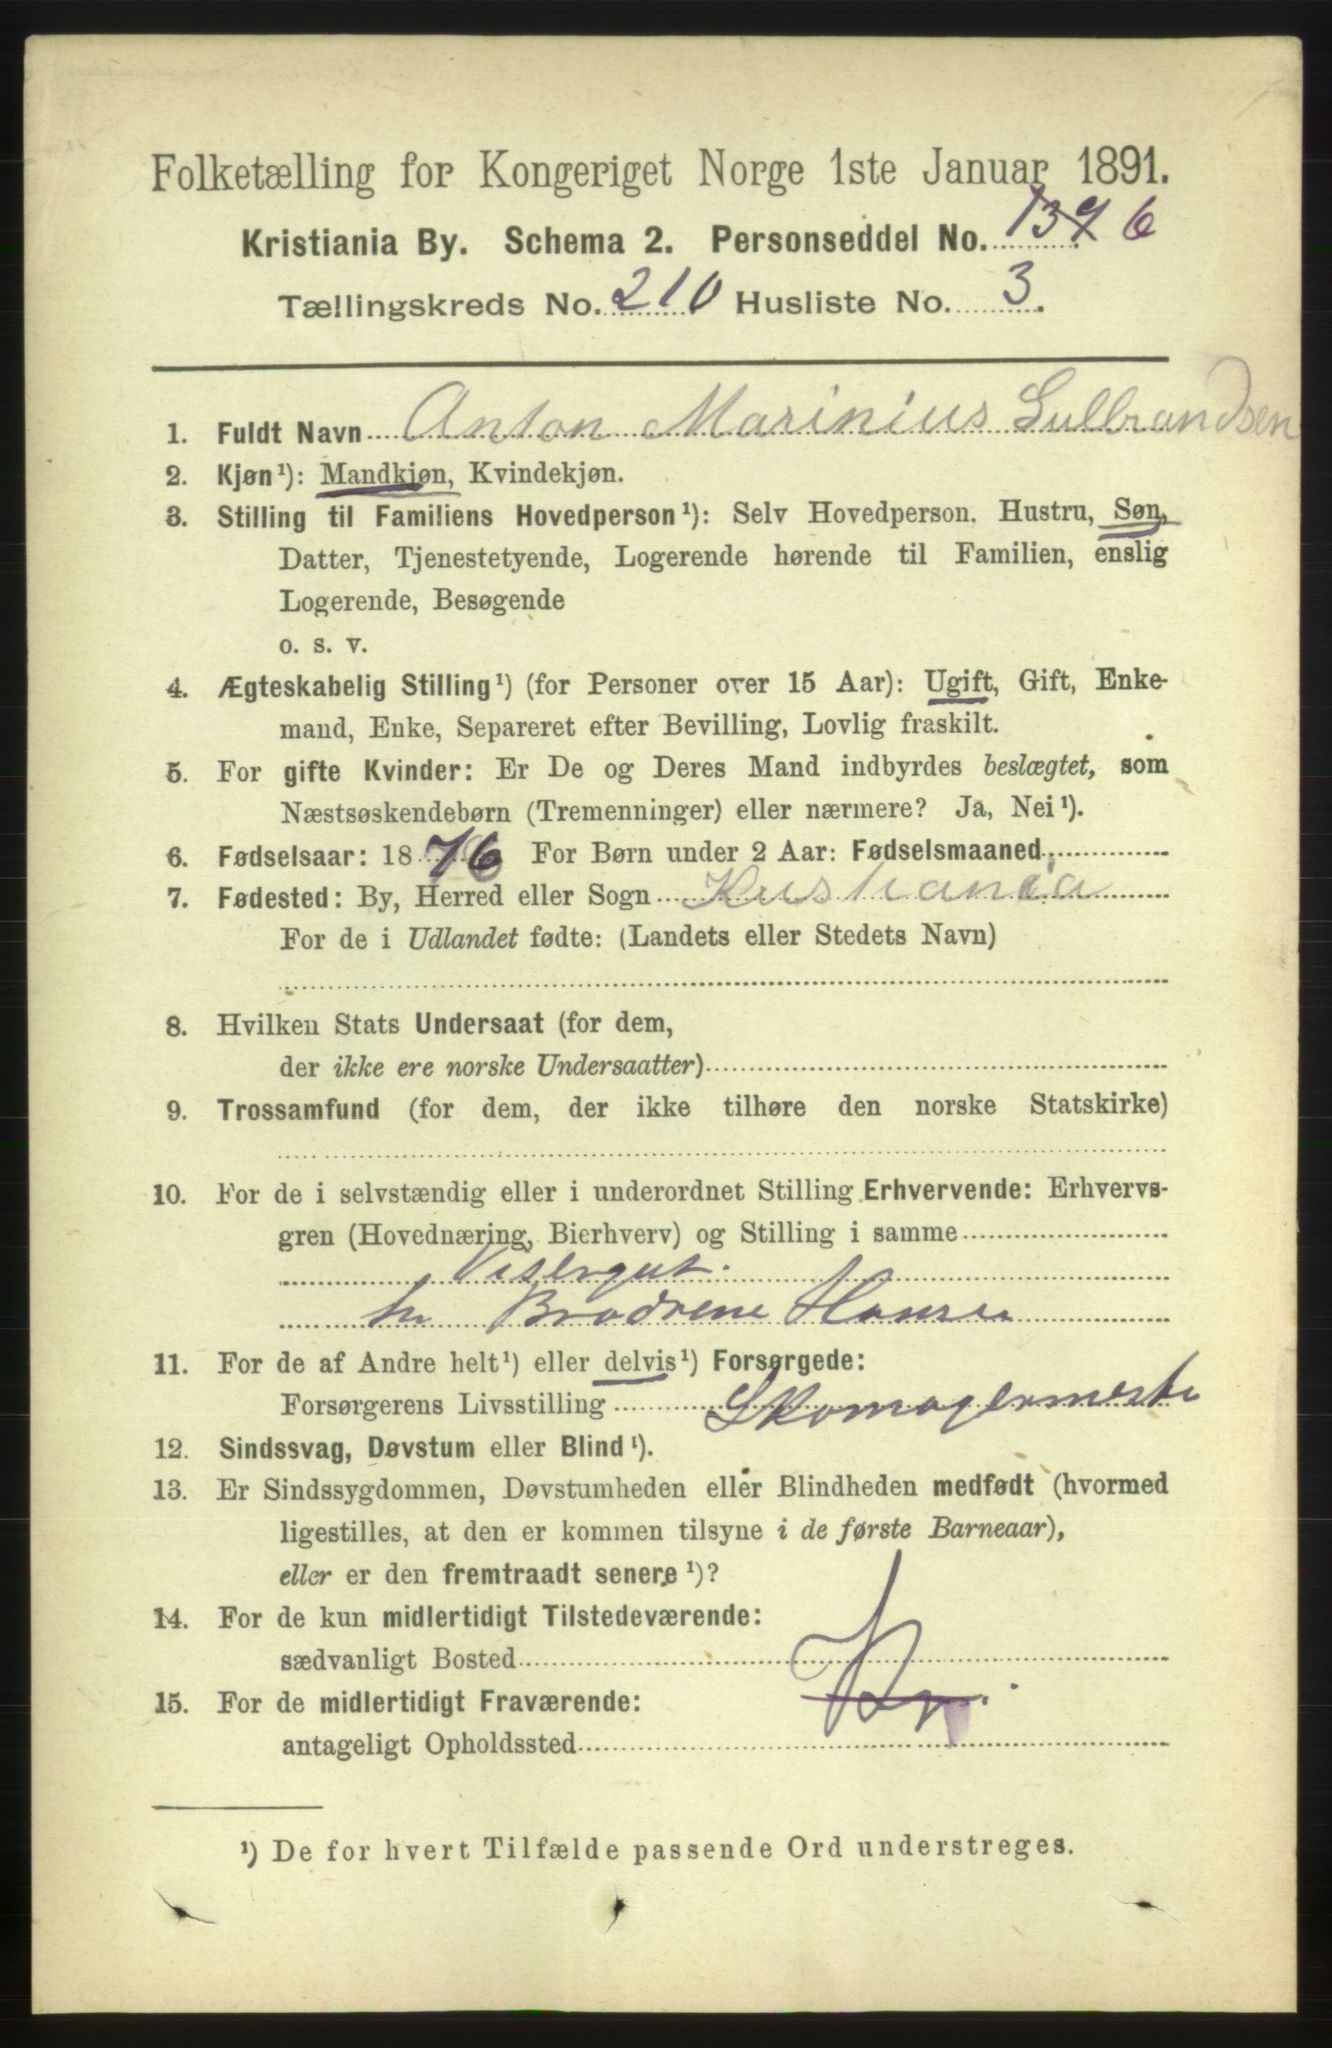 Folketælling for Kongeriget Norge 1ste Januar 1891.
Kristiania By. Schema 2. Personseddel No. 1376
Tællingskreds No. 210 Husliste No. 3.
1. Fuldt Navn Anton Marinius Gulbrandsen
2. Kjøn¹): Mandkjøn, Kvindekjøn.
3. Stilling til Familiens Hovedperson¹): Selv Hovedperson, Hustru, Søn,
Datter, Tjenestetyende, Logerende hørende til Familien, enslig
Logerende, Besøgende
o. s. v.
4. Ægteskabelig Stilling¹) (for Personer over 15 Aar): Ugift, Gift, Enke-
mand, Enke, Separeret efter Bevilling, Lovlig fraskilt.
5. For gifte Kvinder: Er De og Deres Mand indbyrdes beslægtet, som
Næstsøskendebørn (Tremenninger) eller nærmere? Ja, Nei¹).
6. Fødselsaar: 1876 For Børn under 2 Aar: Fødselsmaaned
7. Fødested: By, Herred eller Sogn Kristiania
For de i Udlandet fødte: (Landets eller Stedets Navn)
8. Hvilken Stats Undersaat (for dem,
der ikke ere norske Undersaatter)
9. Trossamfund (for dem, der ikke tilhøre den norske Statskirke)
10. For de i selvstændig eller i underordnet Stilling Erhvervende: Erhvervs-
gren (Hovednæring, Bierhverv) og Stilling i samme
Visergut.
hr Brødrene Hansen
11. For de af Andre helt¹) eller delvis¹) Forsørgede:
Forsørgerens Livsstilling Skomagermester
12. Sindssvag, Døvstum eller Blind¹).
13. Er Sindssygdommen, Døvstumheden eller Blindheden medfødt (hvormed
ligestilles, at den er kommen tilsyne i de første Barneaar),
eller er den fremtraadt senere¹)?
14. For de kun midlertidigt Tilstedeværende:
sædvanligt Bosted
15. For de midlertidigt Fraværende:
antageligt Opholdssted
Kr.
¹) De for hvert Tilfælde passende Ord understreges.